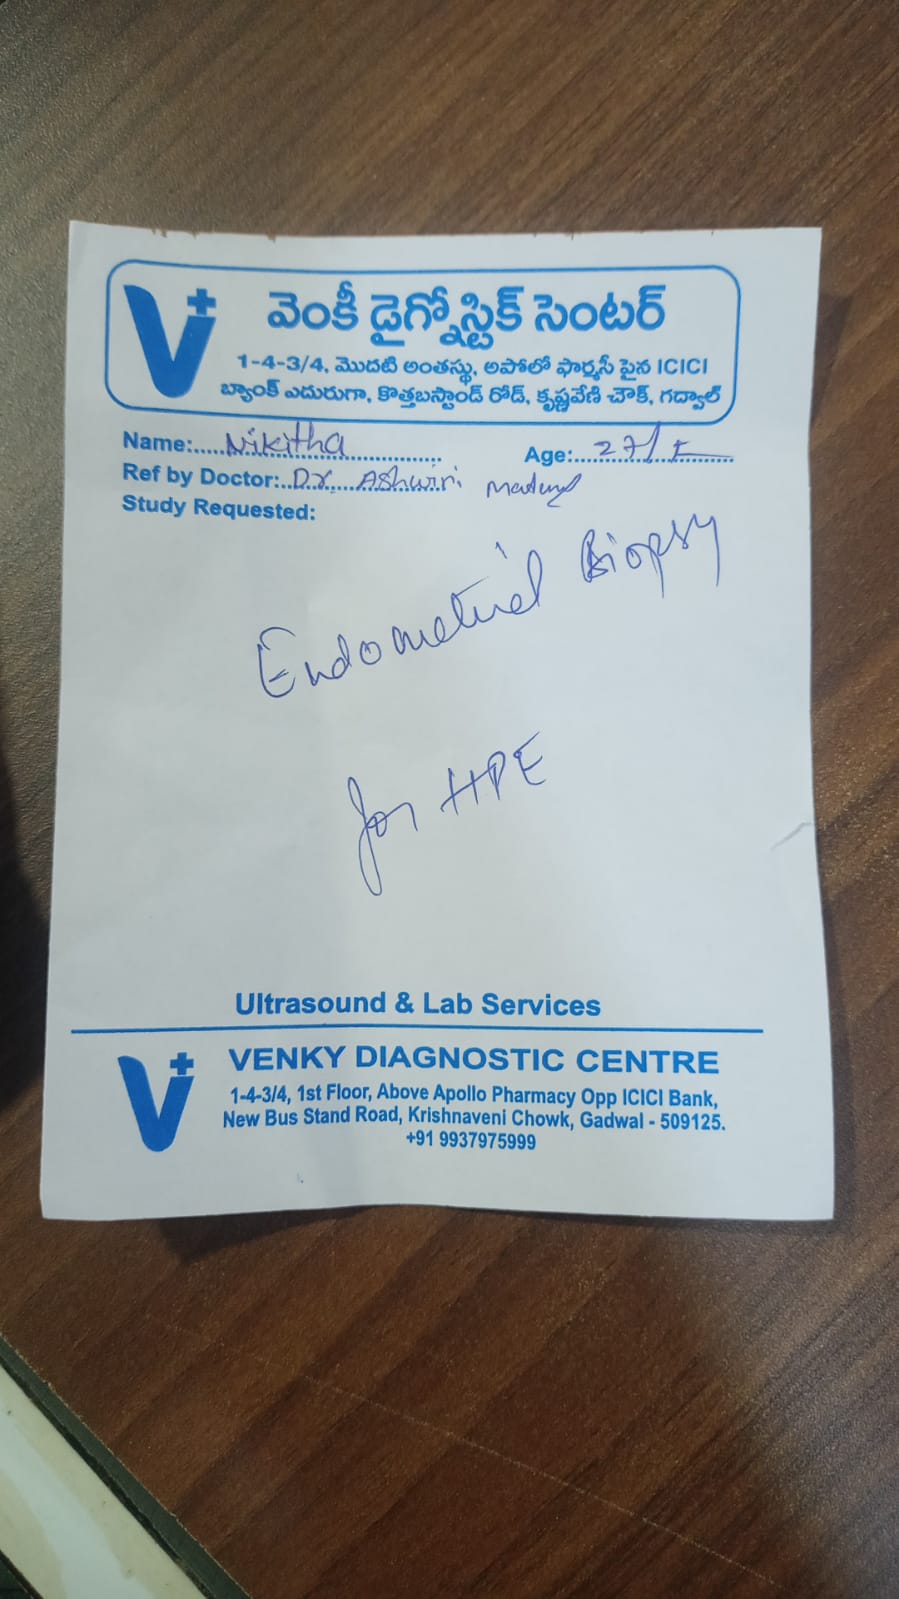 వెంకీ డైగ్నోస్టిక్ సెంటర్
1-4-3/4, మొదటి అంతస్థు, అపోలో ఫార్మసీ పైన ICICI
బ్యాంక్ ఎదురుగా, కొత్తబస్టాండ్ రోడ్, కృష్ణవేణి చౌక్, గద్వాల్
Name:.....Nikitha..................... Age:...27/F...........
Ref by Doctor:..Dr. Ashwini
Study Requested:
Endometrial Biopsy
for HPE
Ultrasound & Lab Services
VENKY DIAGNOSTIC CENTRE
1-4-3/4, 1st Floor, Above Apollo Pharmacy Opp ICICI Bank,
New Bus Stand Road, Krishnaveni Chowk, Gadwal - 509125.
+91 9937975999